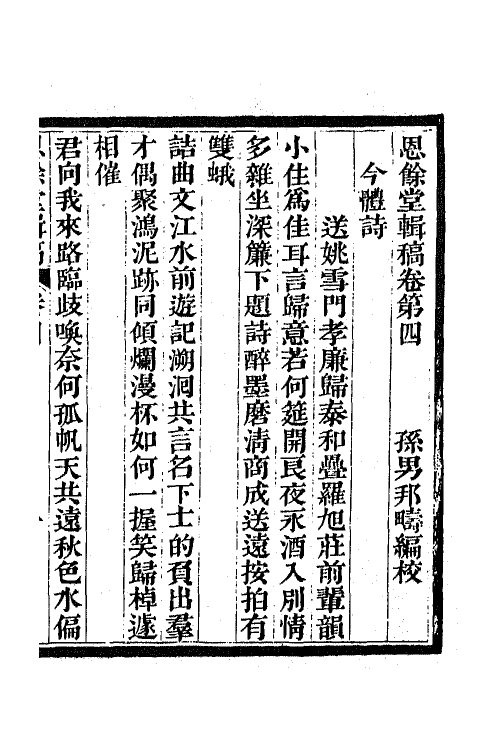 恩餘堂輯稿卷第四 孫男邦疇編校
今體詩
送姚雪門孝廉歸泰和疊羅旭莊前輩韻
小住爲佳耳言歸意若何筵開良夜永酒入別情
多雜坐深簾下題詩醉墨磨淸商成送遠按拍有
雙蛾
詰曲文江水前遊記溯洄共言名下士的負出羣
才偶聚鴻泥跡同傾爛漫杯如何一握笑歸棹遽
相催
君向我來路臨歧喚奈何孤帆天共遠秋色水偏